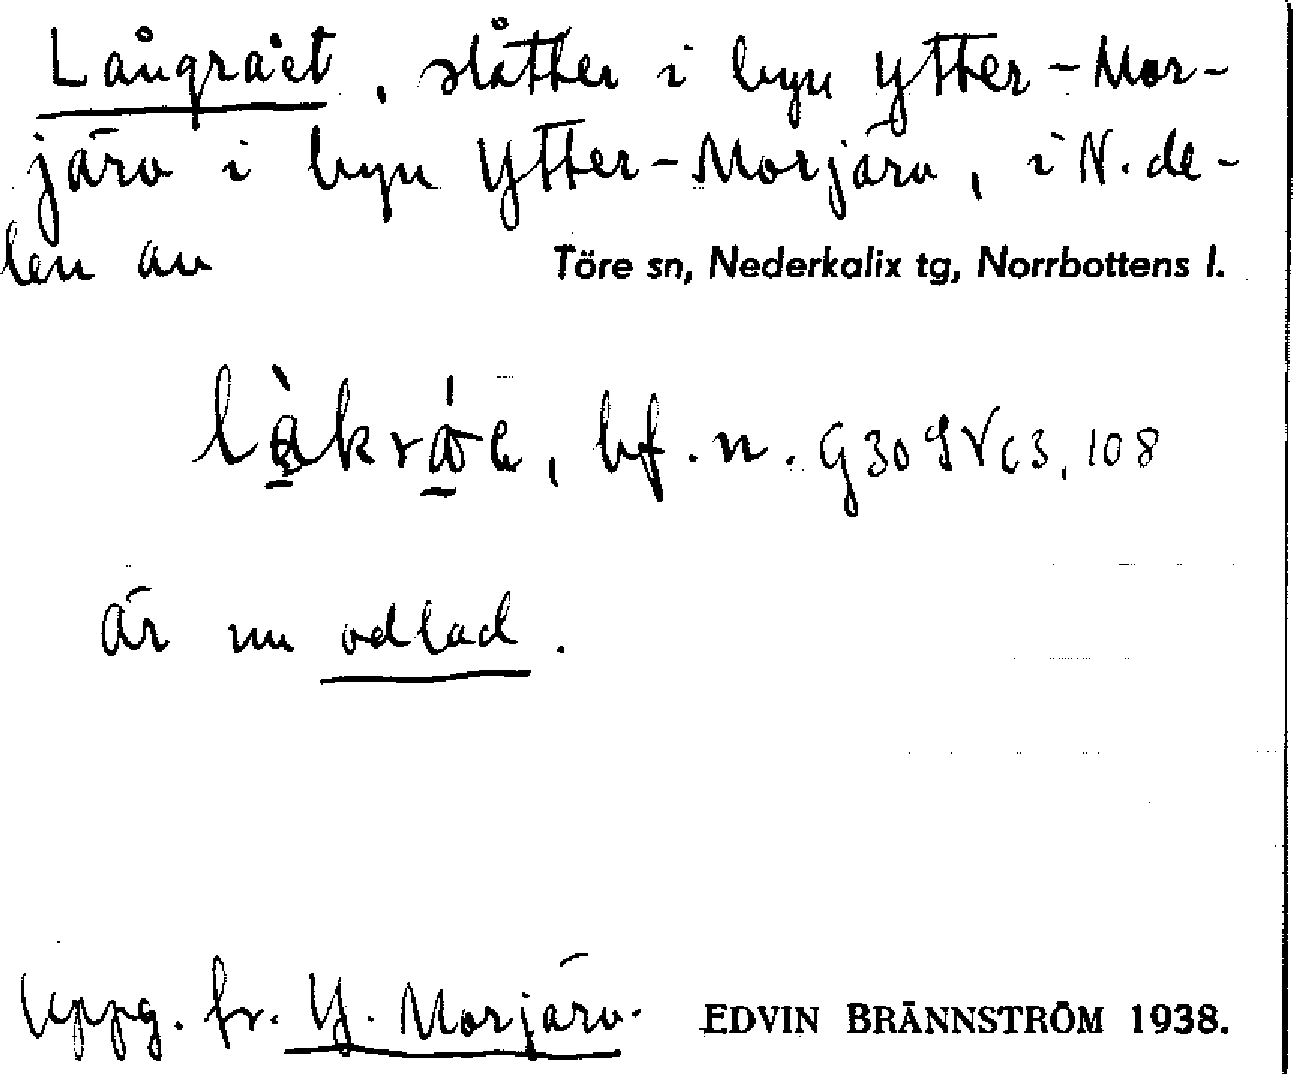 Långrået, slåtter i byn Ytter-Mor-
järv i byn Ytter-Morjärv, i N. de-
len av Töre sn, Nederkalix tg, Norrbottens l.
bf. n. G 30 SV c 3, 108
är nu odlad.
Uppg. fr. Y. Morjärv. EDVIN BRÄNNSTRÖM 1938.